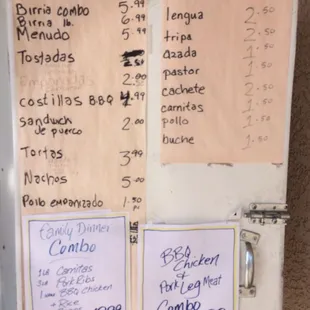 Birria combo 5.99
Birria lb. 6.99
Menudo 5.99
Tostadas 2.50
2.00
costillas BBQ 4.99
sandwich de puerco 2.00
Tortas 3.99
Nachos 5.00
Pollo empanizado 1.50
lengua 2.50
tripa 2.50
azada 1.50
pastor 1.50
cachete 2.50
carnitas 1.50
pollo 1.50
buche 1.50
Family Dinner
Combo
1 LB Carnitas
Pork Ribs
BBQ chicken
+ Rice
BBQ
Chicken
+
Pork Leg Meat
Combo